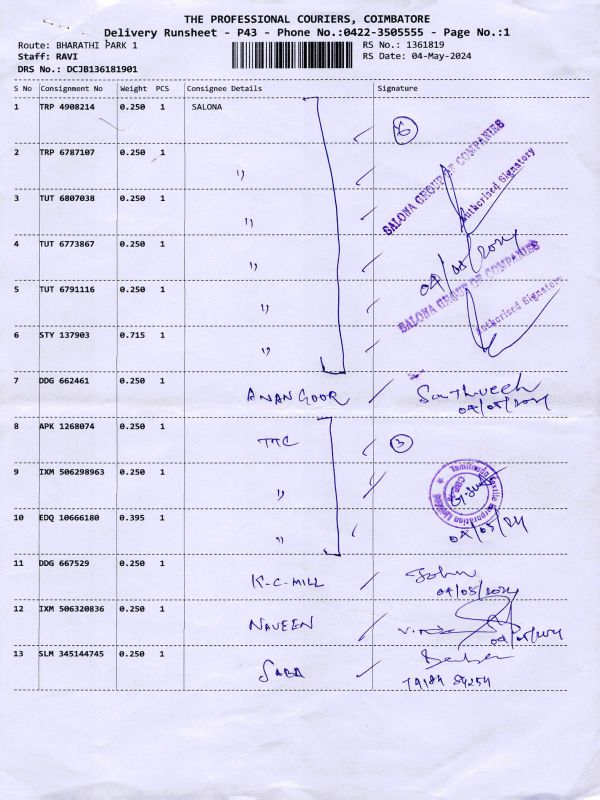 THE PROFESSIONAL COURIERS, COIMBATORE
Delivery Runsheet - P43 - Phone No.:0422-3505555 - Page No.:1
Route: BHARATHI PARK 1
RS No.: 1361819
Staff: RAVI
RS Date: 04-May-2024
DRS No.: DCJB136181901
S No Consignment No Weight PCS Consignee Details Signature
1 TRP 4908214 0.250 1 SALONA 6
2 TRP 6787107 0.250 1 "
SALONA GROUP OF COMPANIES
Authorised Signatory
3 TUT 6807038 0.250 1 "
4 TUT 6773867 0.250 1 "
04/05/2024
5 TUT 6791116 0.250 1 "
SALONA GROUP OF COMPANIES
Authorised Signatory
6 STY 137903 0.715 1 "
7 DDG 662461 0.250 1 ANANGOOR
04/05/2024
8 APK 1268074 0.250 1 TTC 3
9 IXM 506298963 0.250 1 "
Tamilnadu Textile Corporation Limited
CBE
10 EDQ 10666180 0.395 1 "
04/05/24
11 DDG 667529 0.250 1 K-C-MILL John
04/05/2024
12 IXM 506320836 0.250 1 NAVEEN
04/05/2024
13 SLM 345144745 0.250 1 SABA